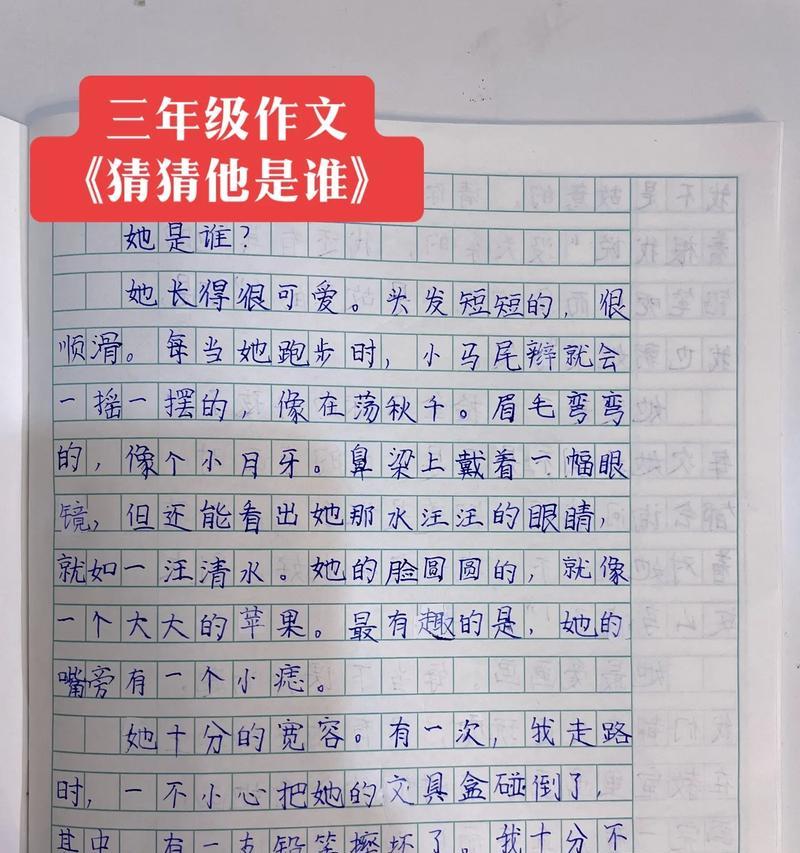 三年级作文
《猜猜他是谁》
她是谁？
她长得很可爱。头发短短的，很
顺滑。每当她跑步时，小马尾辫就会
一摇一摆的，像在荡秋千。眉毛弯弯
的，像个小月牙。鼻梁上戴着一幅眼
镜，但还能看出她那水汪汪的眼睛，
就如一汪清水。她的脸圆圆的，就像
一个大大的苹果。最有趣的是，她的
嘴旁有一个小痣。
她十分的宽容。有一次，我走路
时，一不小心把她的文具盒碰倒了，
其中 有一支铅笔擦坏了。我十分不